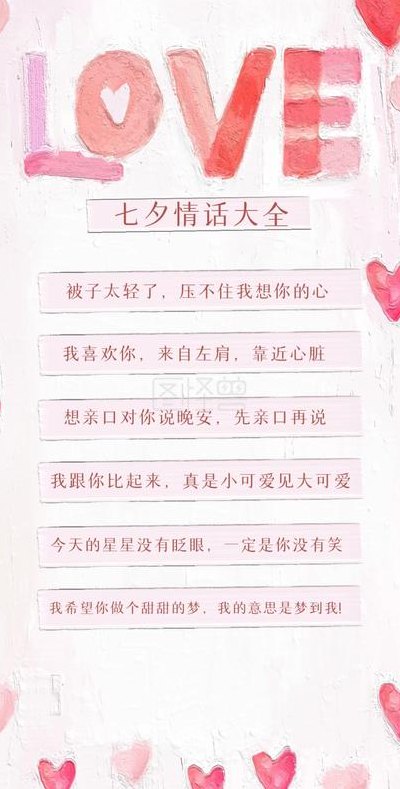 LOVE
七夕情话大全
被子太轻了，压不住我想你的心
我喜欢你，来自左肩，靠近心脏
图怪兽
想亲口对你说晚安，先亲口再说
我跟你比起来，真是小可爱见大可爱
今天的星星没有眨眼，一定是你没有笑
我希望你做个甜甜的梦，我的意思是梦到我!